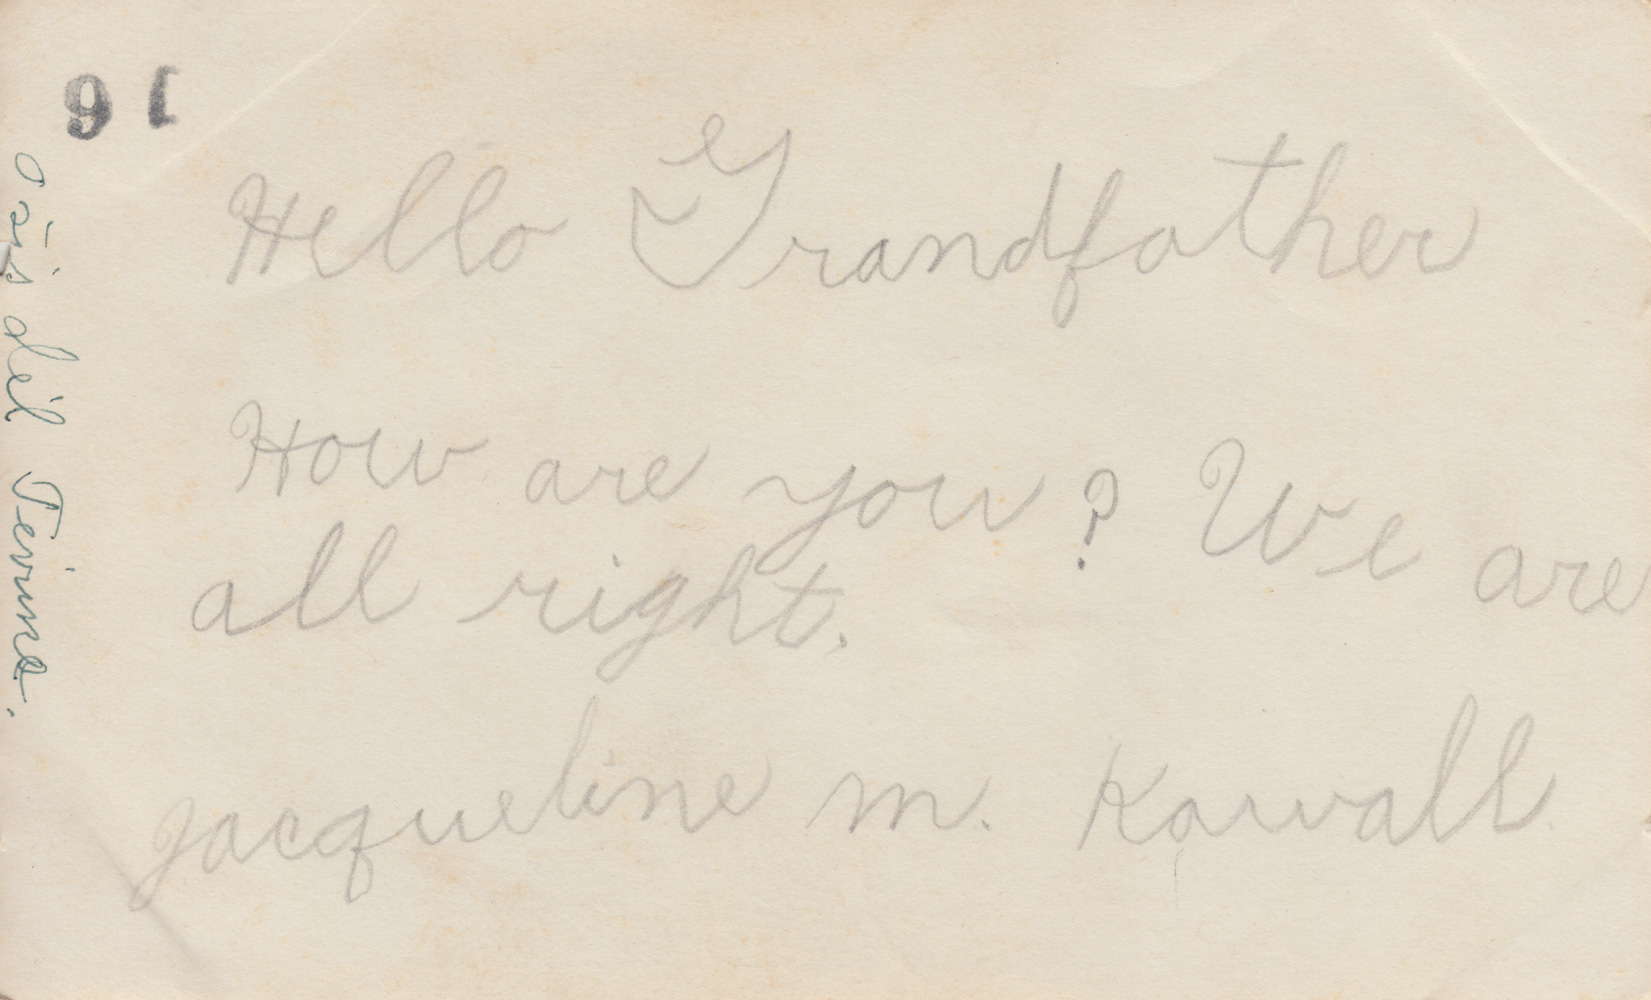 16
Hello Grandfather
How are you? We are
all right.
Jacqueline M. Kawall